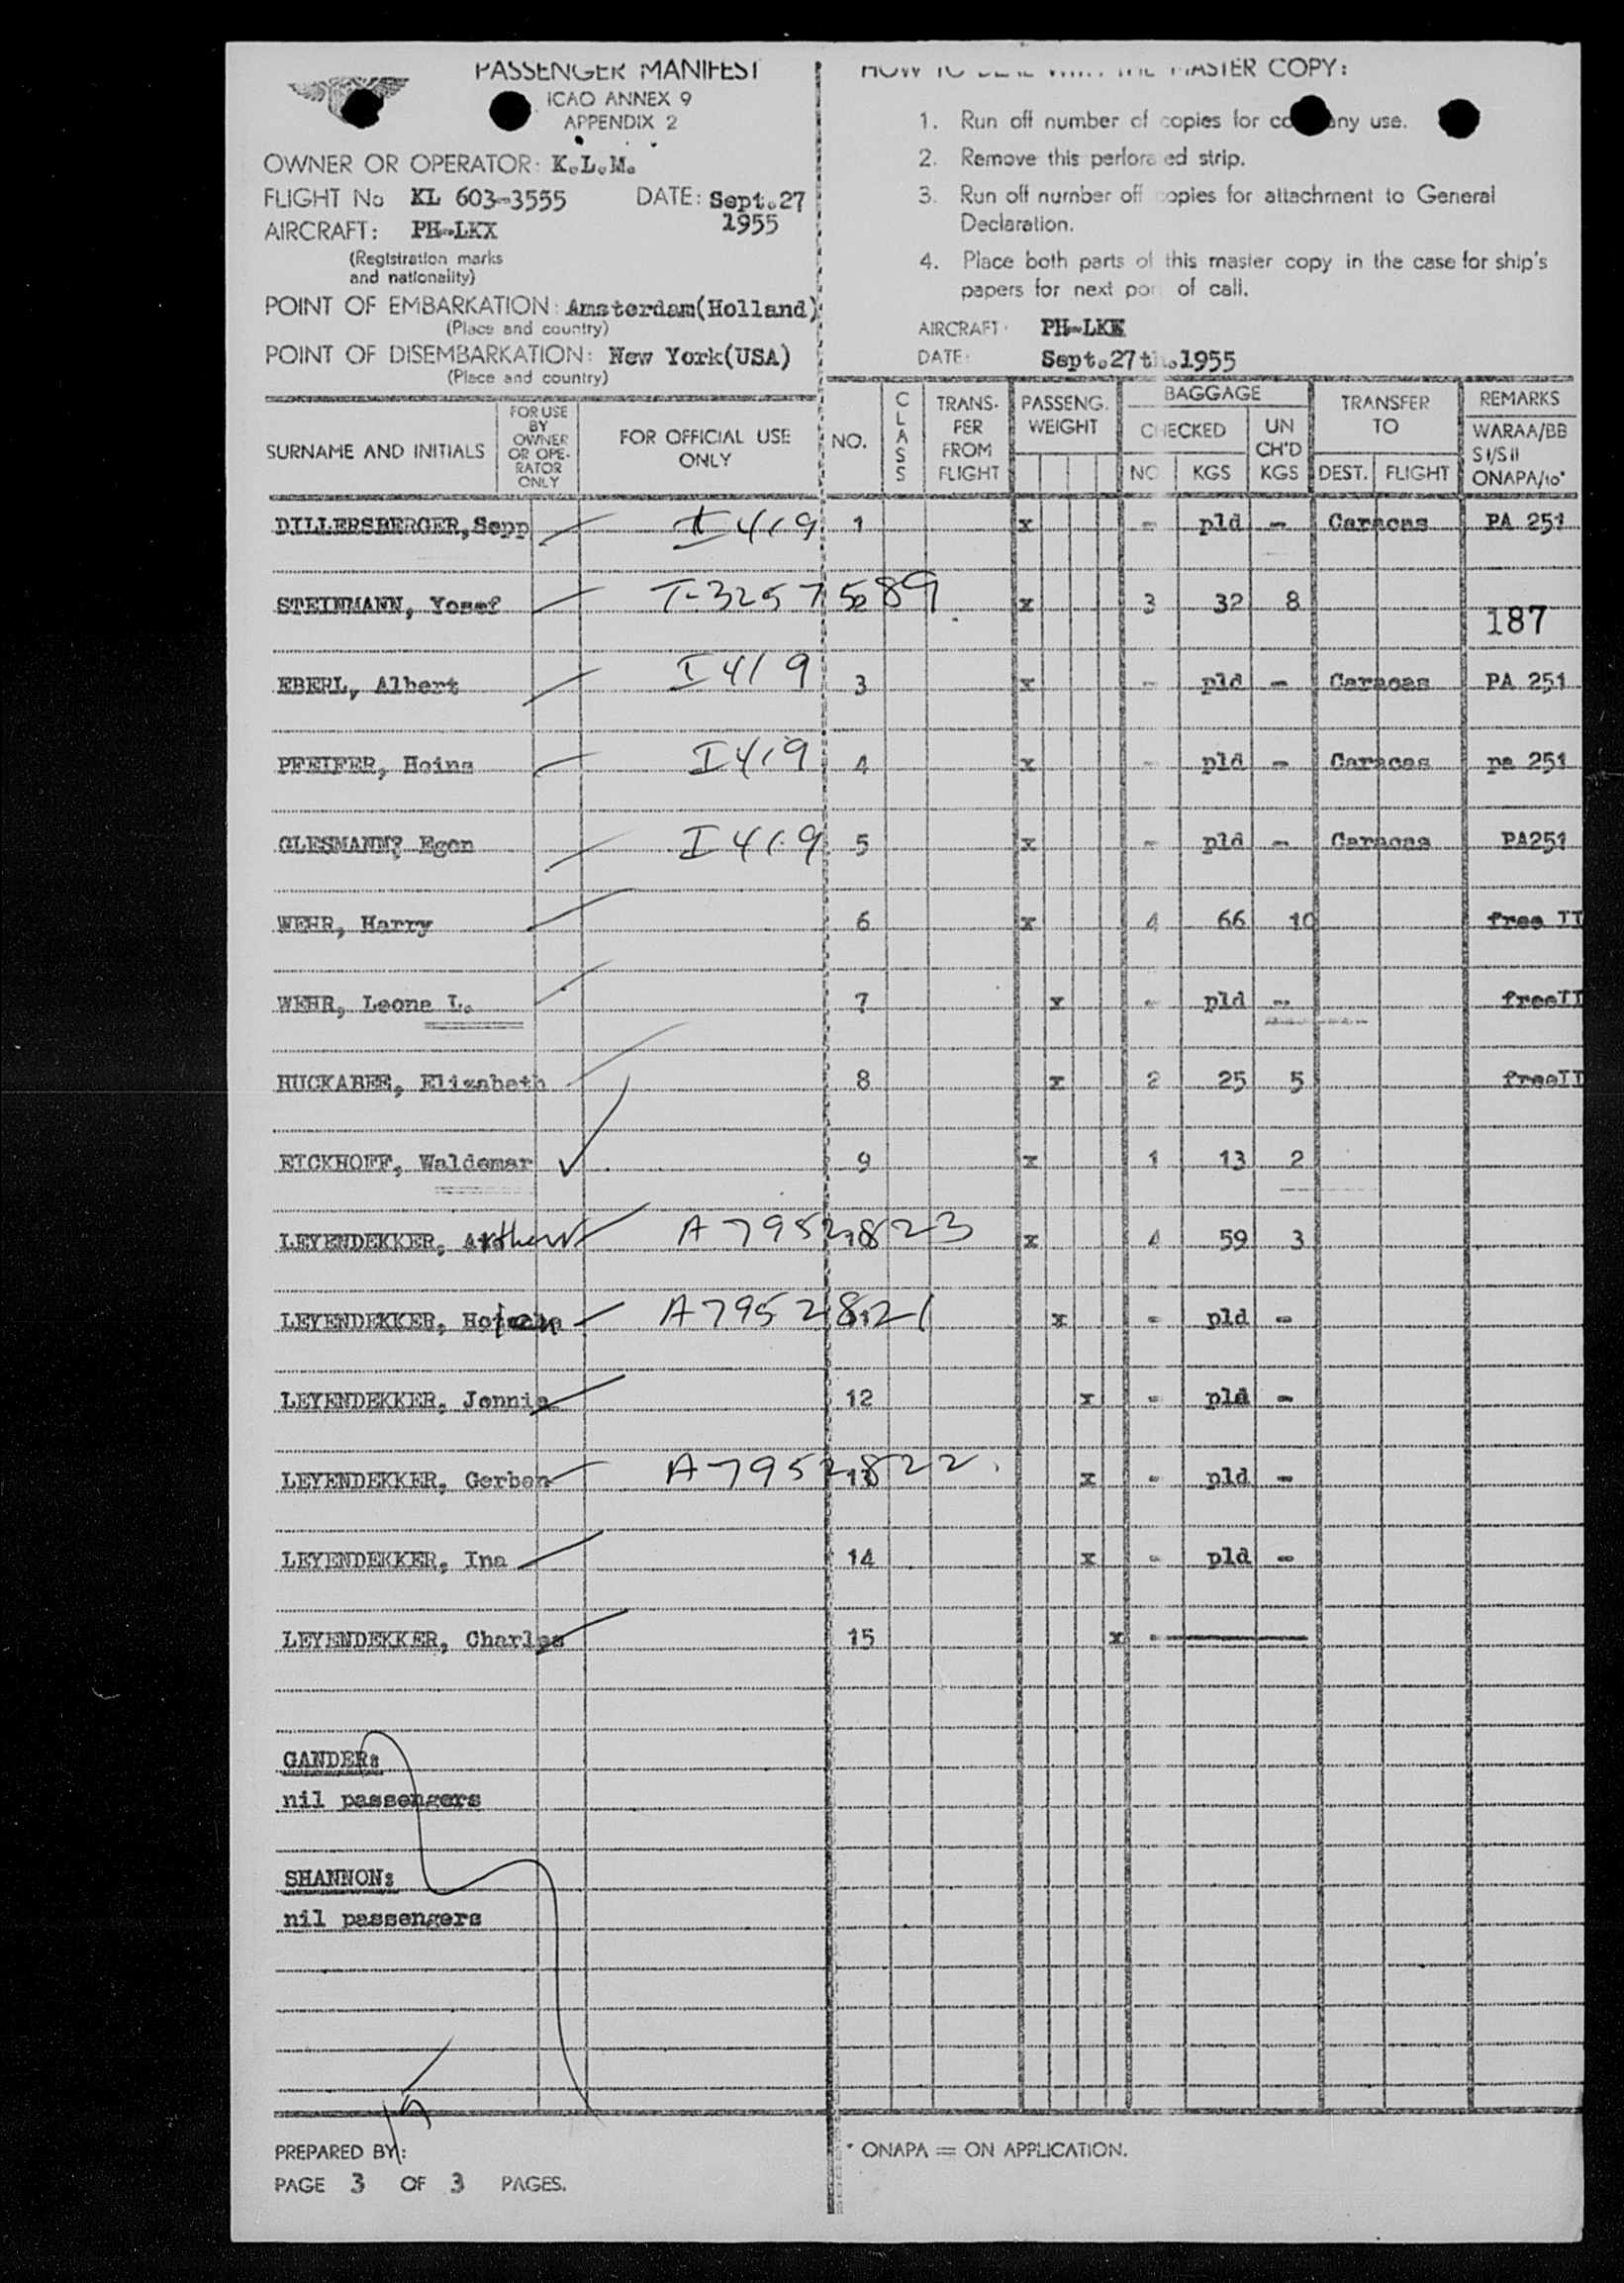 PASSENGER MANIFEST
ICAO ANNEX 9
APPENDIX 2
OWNER OR OPERATOR: K.L.M.
FLIGHT No KL 603-3555 DATE: Sept.27
1955
AIRCRAFT: PH-LKX
(Registration marks
and nationality)
POINT OF EMBARKATION: Amsterdam(Holland)
(Place and country)
POINT OF DISEMBARKATION: New York(USA)
(Place and country)
HOW TO DEAL WITH THE MASTER COPY:
1. Run off number of copies for company use.
2. Remove this perforated strip.
3. Run off number off copies for attachment to General
Declaration.
4. Place both parts of this master copy in the case for ship's
papers for next port of call.
AIRCRAFT: PH-LKX
DATE: Sept.27th.1955
SURNAME AND INITIALS FOR USE BY OWNER OR OPE-RATOR ONLY FOR OFFICIAL USE ONLY NO. CLASS TRANS-FER FROM FLIGHT PASSENG. WEIGHT BAGGAGE CHECKED NO KGS UN CH'D KGS TRANSFER TO DEST. FLIGHT REMARKS WARAA/BB SI/SII ONAPA/to*
DILLERSBERGER, Sepp I 419 1 x - pld - Caracas PA 251
STEINMANN, Yosef T-3257589 x 3 32 8
187
EBERL, Albert I 419 3 x - pld - Caracas PA 251
PFEIFER, Heinz I 419 4 x - pld - Caracas pa 251
GLESMANN? Egon I 419 5 x - pld - Caracas PA251
WEHR, Harry 6 x 4 66 10 free II
WEHR, Leone L. 7 x - pld - freeII
HUCKABEE, Elizabeth 8 x 2 25 5 freeII
EICKHOFF, Waldemar 9 x 1 13 2
LEYENDEKKER, Arthur A7952823 x 4 59 3
LEYENDEKKER, A7952821 x - pld -
LEYENDEKKER, Jennie 12 x - pld -
LEYENDEKKER, Gerben A7952822 13 x - pld -
LEYENDEKKER, Ina 14 x - pld -
LEYENDEKKER, Charles 15 x -
GANDER:
nil passengers
SHANNON:
nil passengers
PREPARED BY:
PAGE 3 OF 3 PAGES.
* ONAPA = ON APPLICATION.